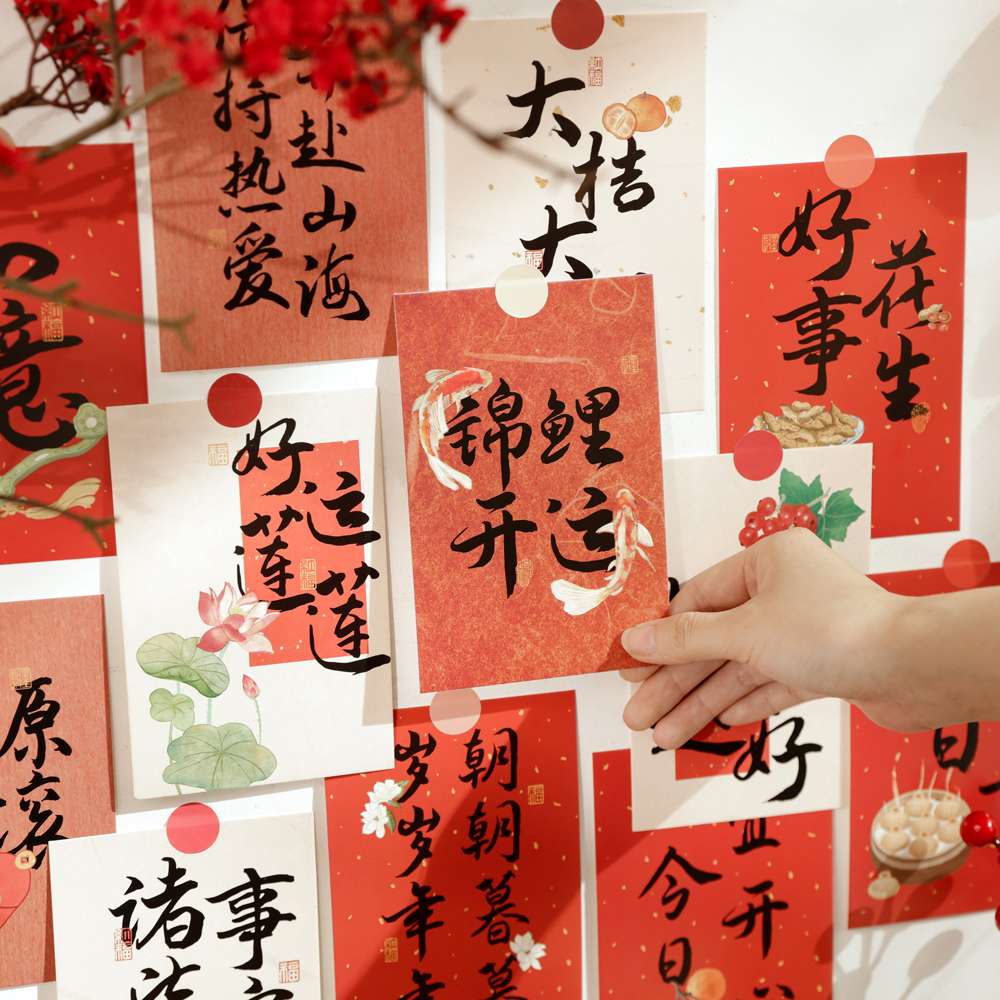 赴山海
持热爱
大桔大
好事
花生
意
锦鲤
开运
好运
莲莲
原滚
好
日
诸事
朝朝暮暮
岁岁年年
今日
宜开